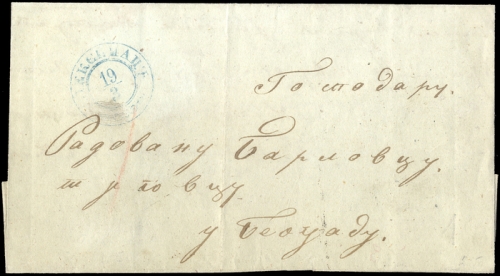 19
2
Господару.
Радовану Барловцу.
трговцу
у Београду.